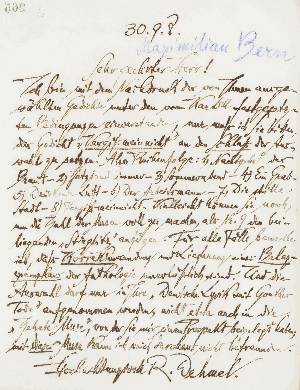 30.9.8.
Maximilian Bern
Sehr geehrter Herr!
Ich bin mit dem Nachdruck der von Ihnen ausge-
wählten Gedichte unter den vom Kartell festgesetz-
ten Bedingungen einverstanden, nur muß ich Sie bitten,
das Gedicht "Vergißmeinnicht" an den Schluß der Aus-
wahl zu setzen. Also Reihenfolge: 1)
Braut - 2) - 3) - 4) Ein Grab -
5) - 6) Der Arbeitsmann - 7) Die stille
Stadt - 8) Vergißmeinnicht. Vielleicht können Sie, noch,
um die Zahl der voll zu machen, als Nr. 9 den bei-
liegenden "Stieglitz" anfügen. Für alle Fälle bemerke
ich, daß Korrektursendung und Lieferung eines Beleg-
exemplars der Anthologie unerläßlich sind. Auch die
Auswahl darf nur in Ihre "Deutsche Lyrik seit Goethes
Tode" aufgenommen werden, nicht etwa auch in die
"Zehnte Muse", von der Sie mir einen Prospekt beigelegt haben;
mit dieser Muse kann ich mich durchaus nicht befreunden.
Hochachtungsvoll R. Dehmel.